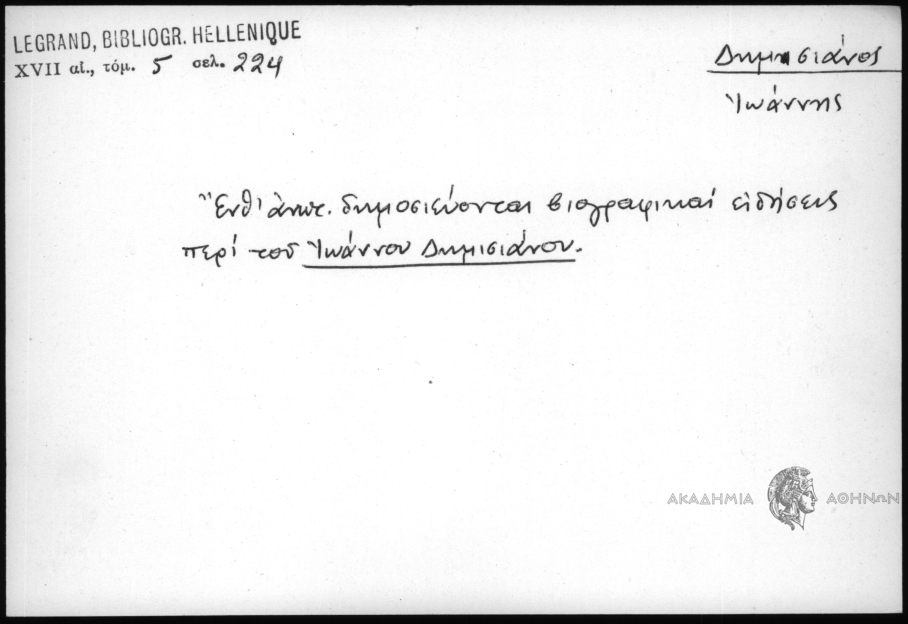 LEGRAND, BIBLIOGR. HELLENIQUE
XVII αἰ., τόμ. 5 σελ. 224
Δημισιάνος
Ἰωάννης
Ἔνθ' ἀνωτ. δημοσιεύονται βιογραφικαί εἰδήσεις
περί τοῦ Ἰωάννου Δημισιάνου.
ΑΚΑΔΗΜΙΑ ΑΘΗΝΩΝ